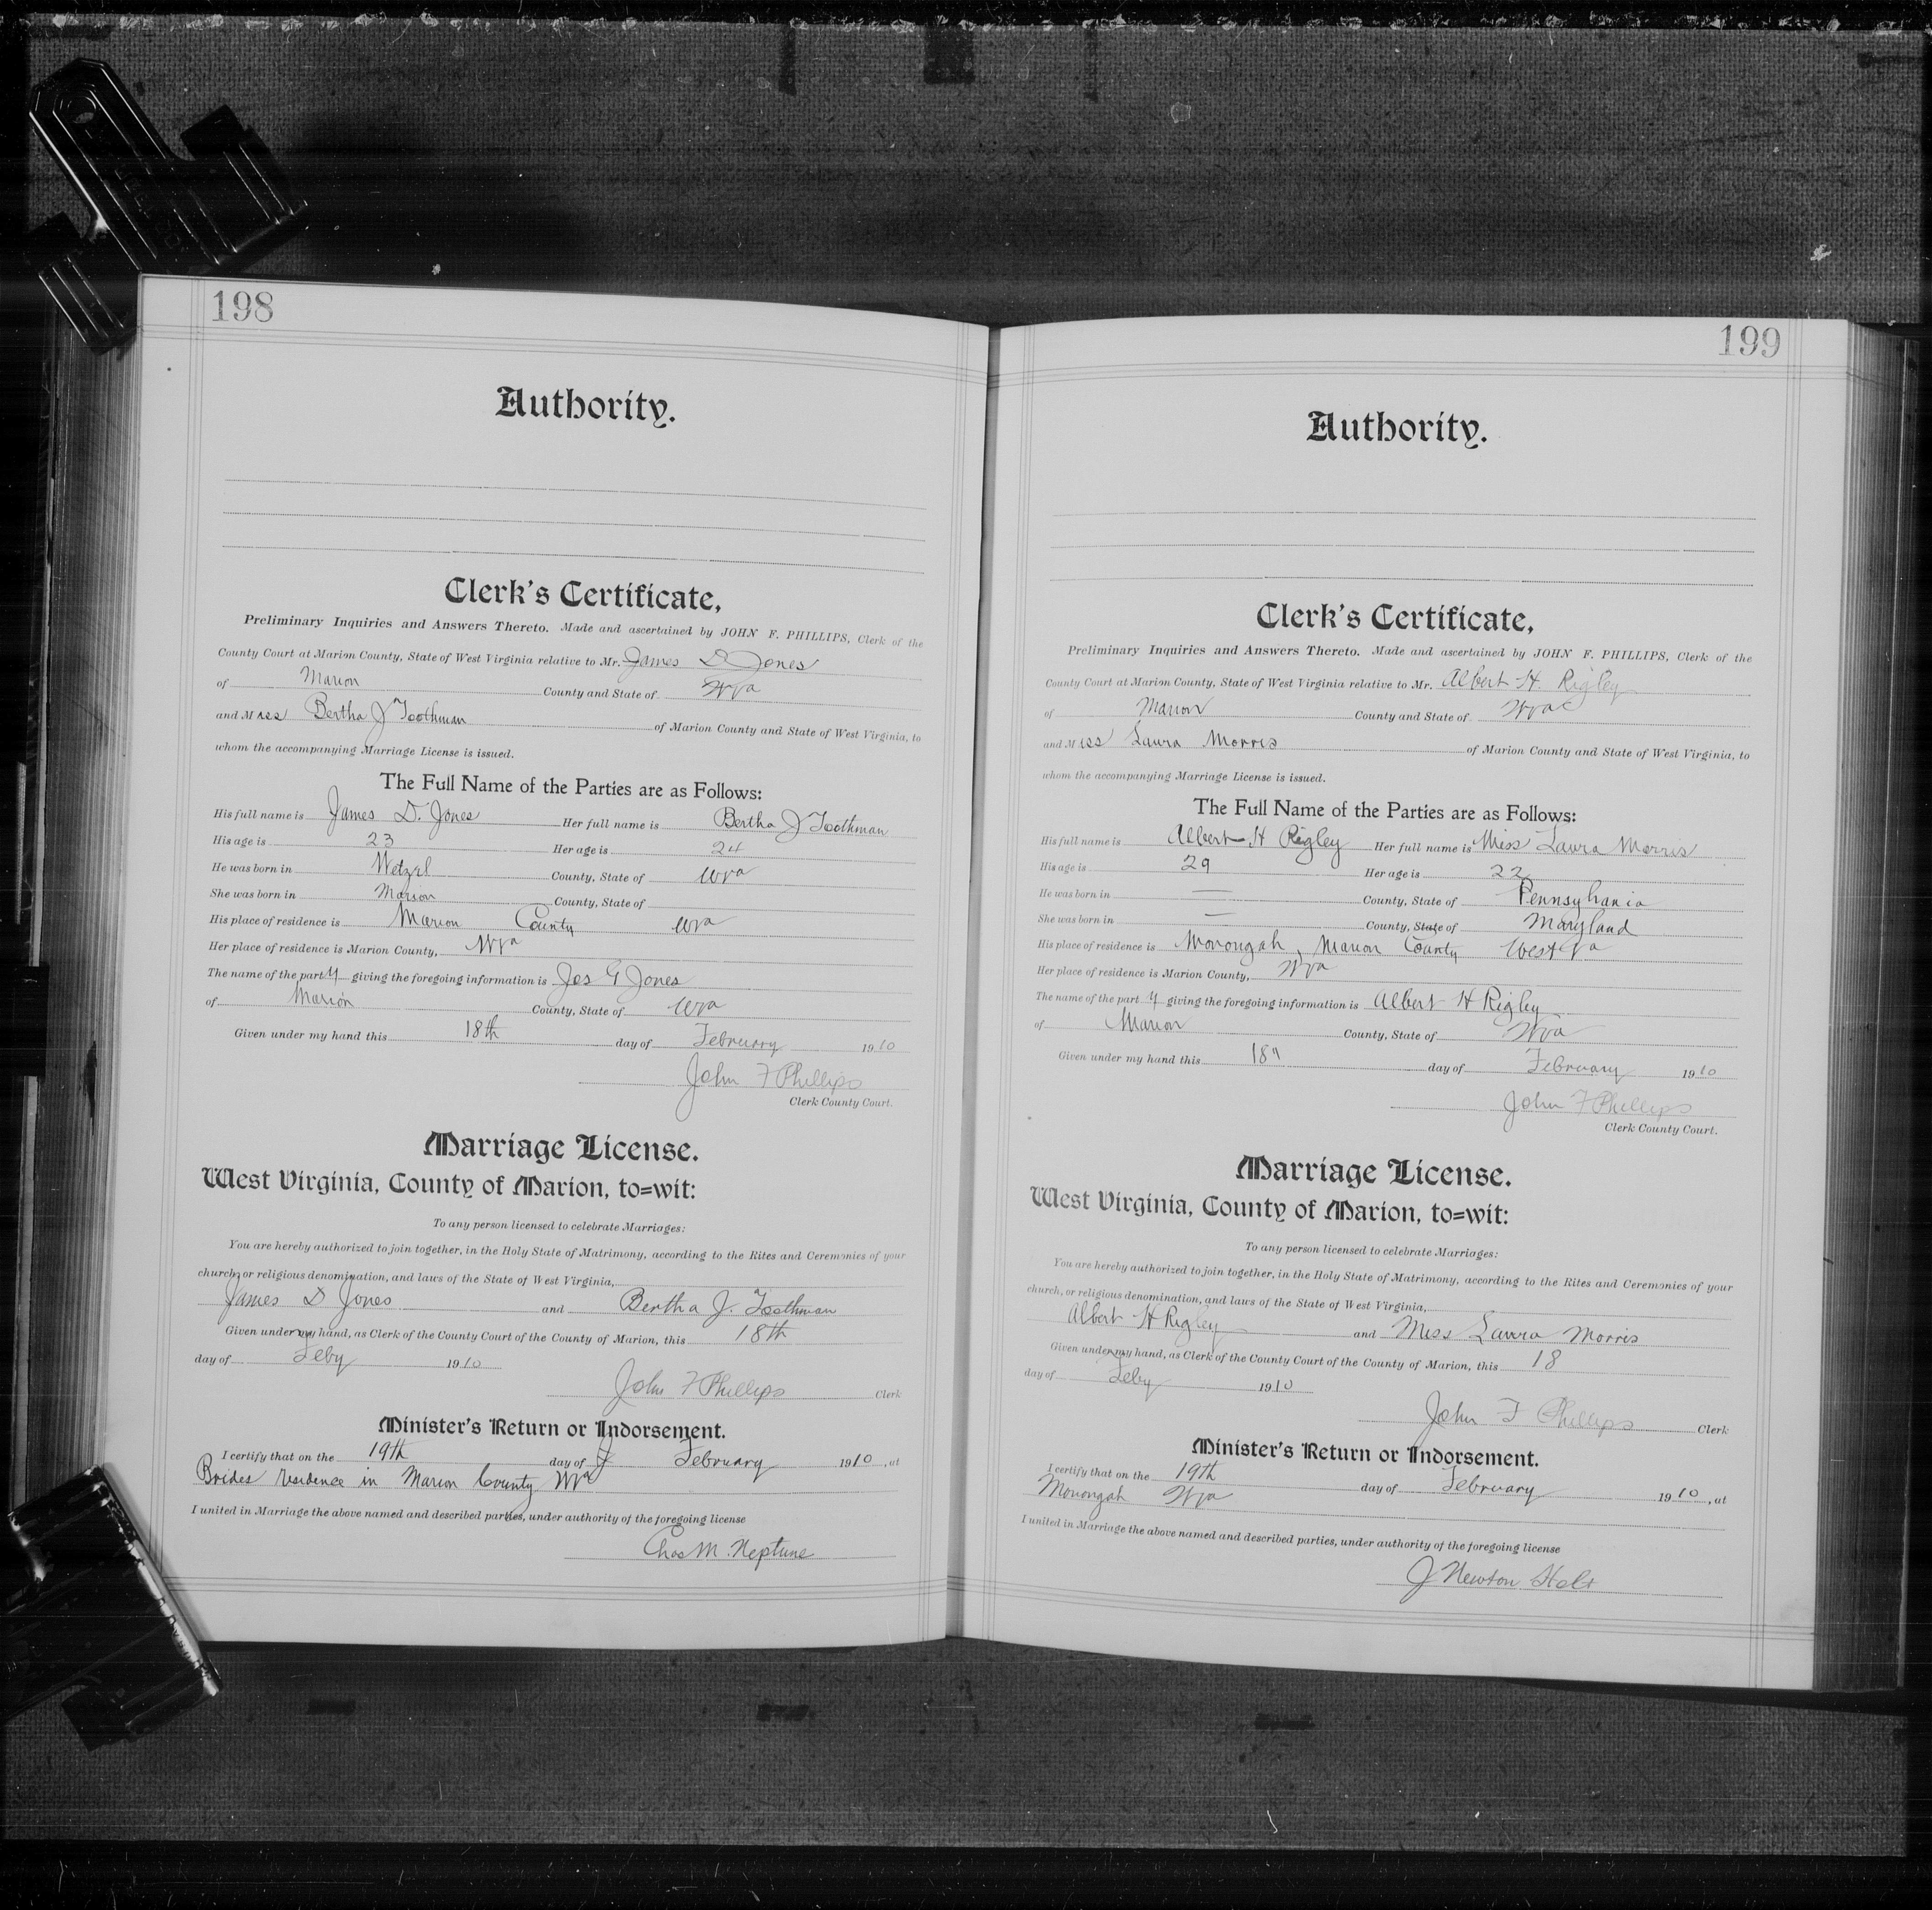 198
Authority.
Clerk's Certificate,
Preliminary Inquiries and Answers Thereto. Made and ascertained by JOHN F. PHILLIPS, Clerk of the
County Court at Marion County, State of West Virginia relative to Mr. James D Jones
of Marion County and State of Wva
and Miss Bertha J Toothman of Marion County and State of West Virginia, to
whom the accompanying Marriage License is issued.
The Full Name of the Parties are as Follows:
His full name is James D. Jones Her full name is Bertha J Toothman
His age is 23 Her age is 24
He was born in Wetzel County, State of Wva
She was born in Marion County, State of
His place of residence is Marion County Wva
Her place of residence is Marion County, Wva
The name of the party giving the foregoing information is Jos G Jones
of Marion County, State of Wva
Given under my hand this 18th day of February 1910
John F Phillips
Clerk County Court.
Marriage License.
West Virginia, County of Marion, to=wit:
To any person licensed to celebrate Marriages:
You are hereby authorized to join together, in the Holy State of Matrimony, according to the Rites and Ceremonies of your
church, or religious denomination, and laws of the State of West Virginia,
James D Jones and Bertha J. Toothman
Given under my hand, as Clerk of the County Court of the County of Marion, this 18th
day of Feby 1910
John F Phillips Clerk
Minister's Return or Indorsement.
I certify that on the 19th day of February 1910, at
Brides residence in Marion County Wva
I united in Marriage the above named and described parties, under authority of the foregoing license
Chas M. Neptune
199
Authority.
Clerk's Certificate,
Preliminary Inquiries and Answers Thereto. Made and ascertained by JOHN F. PHILLIPS, Clerk of the
County Court at Marion County, State of West Virginia relative to Mr. Albert H. Rigley
of Marion County and State of Wva
and Miss Laura Morris of Marion County and State of West Virginia, to
whom the accompanying Marriage License is issued.
The Full Name of the Parties are as Follows:
His full name is Albert H Rigley Her full name is Miss Laura Morris
His age is 29 Her age is 22
He was born in — County, State of Pennsylvania
She was born in — County, State of Maryland
His place of residence is Monongah, Marion County West Va
Her place of residence is Marion County, Wva
The name of the party giving the foregoing information is Albert H Rigley
of Marion County, State of Wva
Given under my hand this 18" day of February 1910
John F Phillips
Clerk County Court.
Marriage License.
West Virginia, County of Marion, to=wit:
To any person licensed to celebrate Marriages:
You are hereby authorized to join together, in the Holy State of Matrimony, according to the Rites and Ceremonies of your
church, or religious denomination, and laws of the State of West Virginia,
Albert H Rigley and Miss Laura Morris
Given under my hand, as Clerk of the County Court of the County of Marion, this 18
day of Feby 1910
John F Phillips Clerk
Minister's Return or Indorsement.
I certify that on the 19th day of February 1910, at
Monongah Wva
I united in Marriage the above named and described parties, under authority of the foregoing license
J Newton Holt